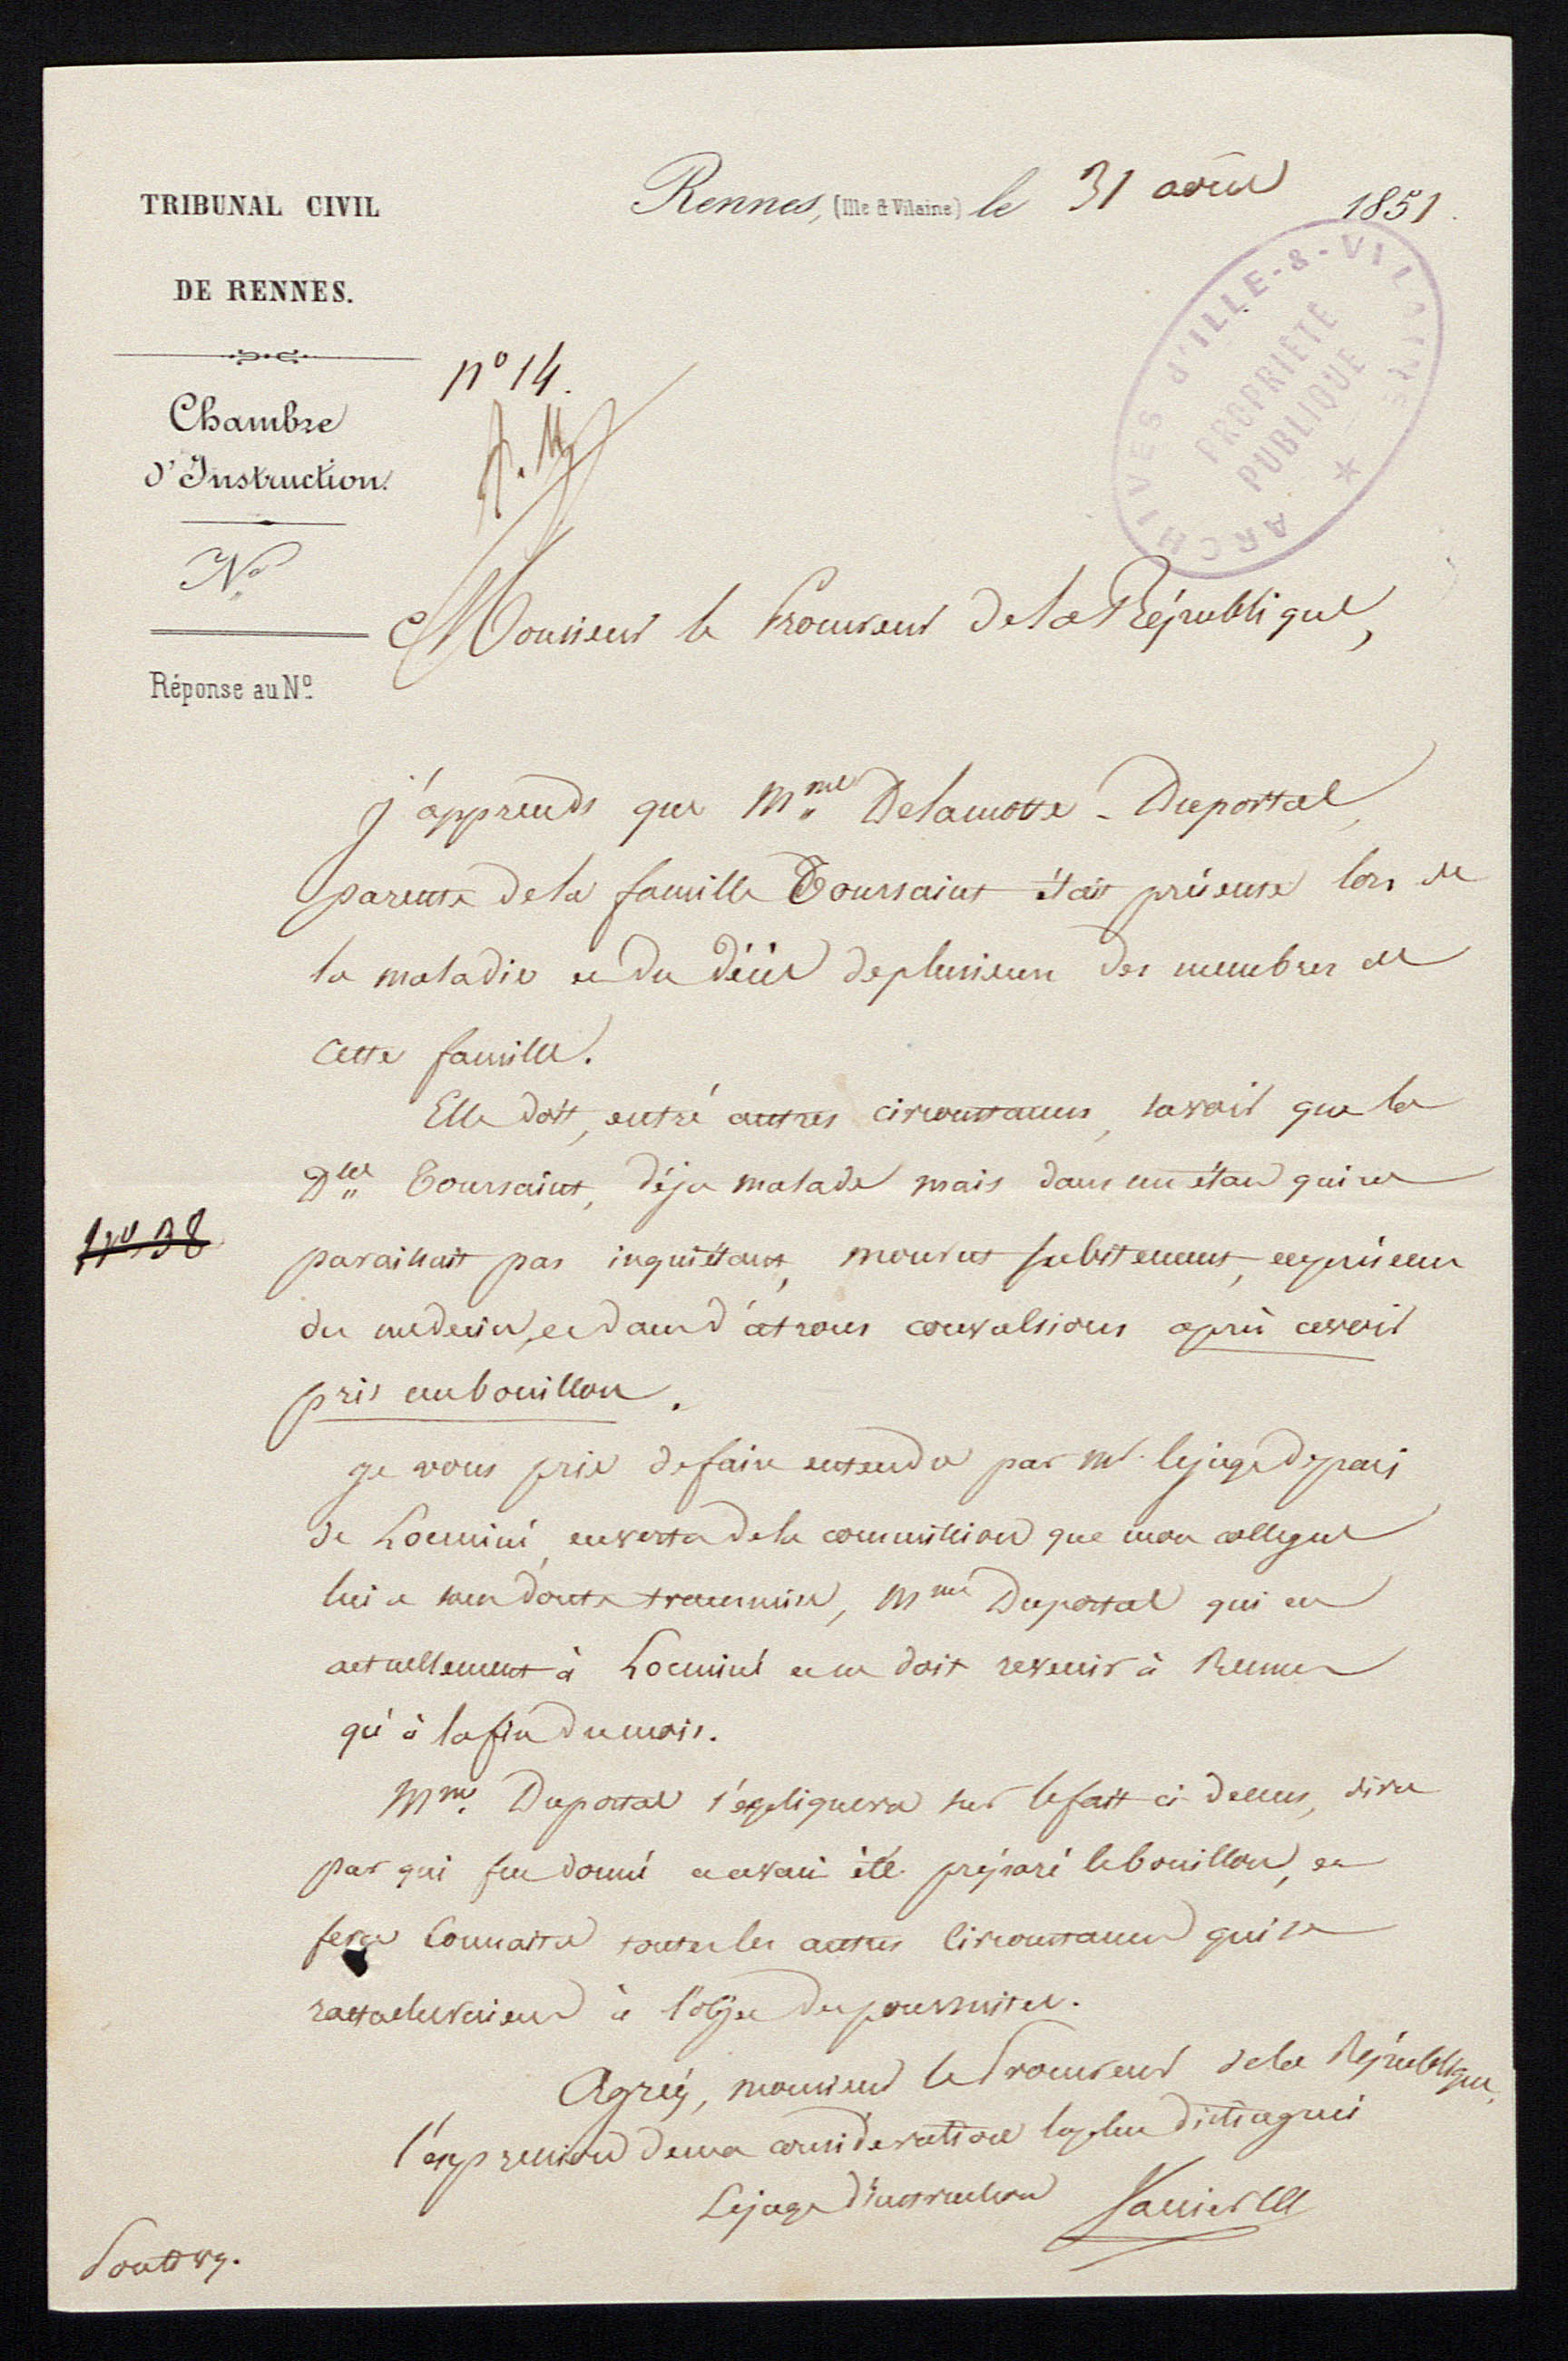 TRIBUNAL CIVIL
DE RENNES.
Chambre
d'Instruction.
N°
Réponse au N°
Rennes, (Ille & Vilaine) le 31 août 1851.
ARCHIVES d'ILLE-&-VILAINE
PROPRIÉTÉ
PUBLIQUE
n° 14.
Monsieur le Procureur de la République,
j'apprends que Mme Delamotte-Duportal,
parente de la famille Toursaint était présente lors de
la maladie et du décès de plusieurs des membres de
cette famille.
Elle doit, entre autres circonstances, savoir que la
Dlle Toursaint, déja malade mais dans un état qui ne
paraissait pas inquiétant, mourut subitement, en présence
du medecin, et dans d'atroces convulsions après avoir
pris un bouillon.
je vous prie de faire entendre par Mr. le juge de paix
de Locminé, en vertu de la commission que mon collegue
lui a sans doute transmise, Mme Duportal qui est
actuellement à Locminé et ne doit revenir à Rennes
qu'à la fin du mois.
Mme Duportal s'expliquera sur le fait ci dessus, dira
par qui fut donné et avait été préparé le bouillon, et
fera connaitre toutes les autres circonstances qui se
rattacheraient à l'objet des poursuites.
Agréez, monsieur le Procureur de la République,
l'expression de ma considération la plus distinguée
Le juge d'instruction
n° 38
Pontivy.